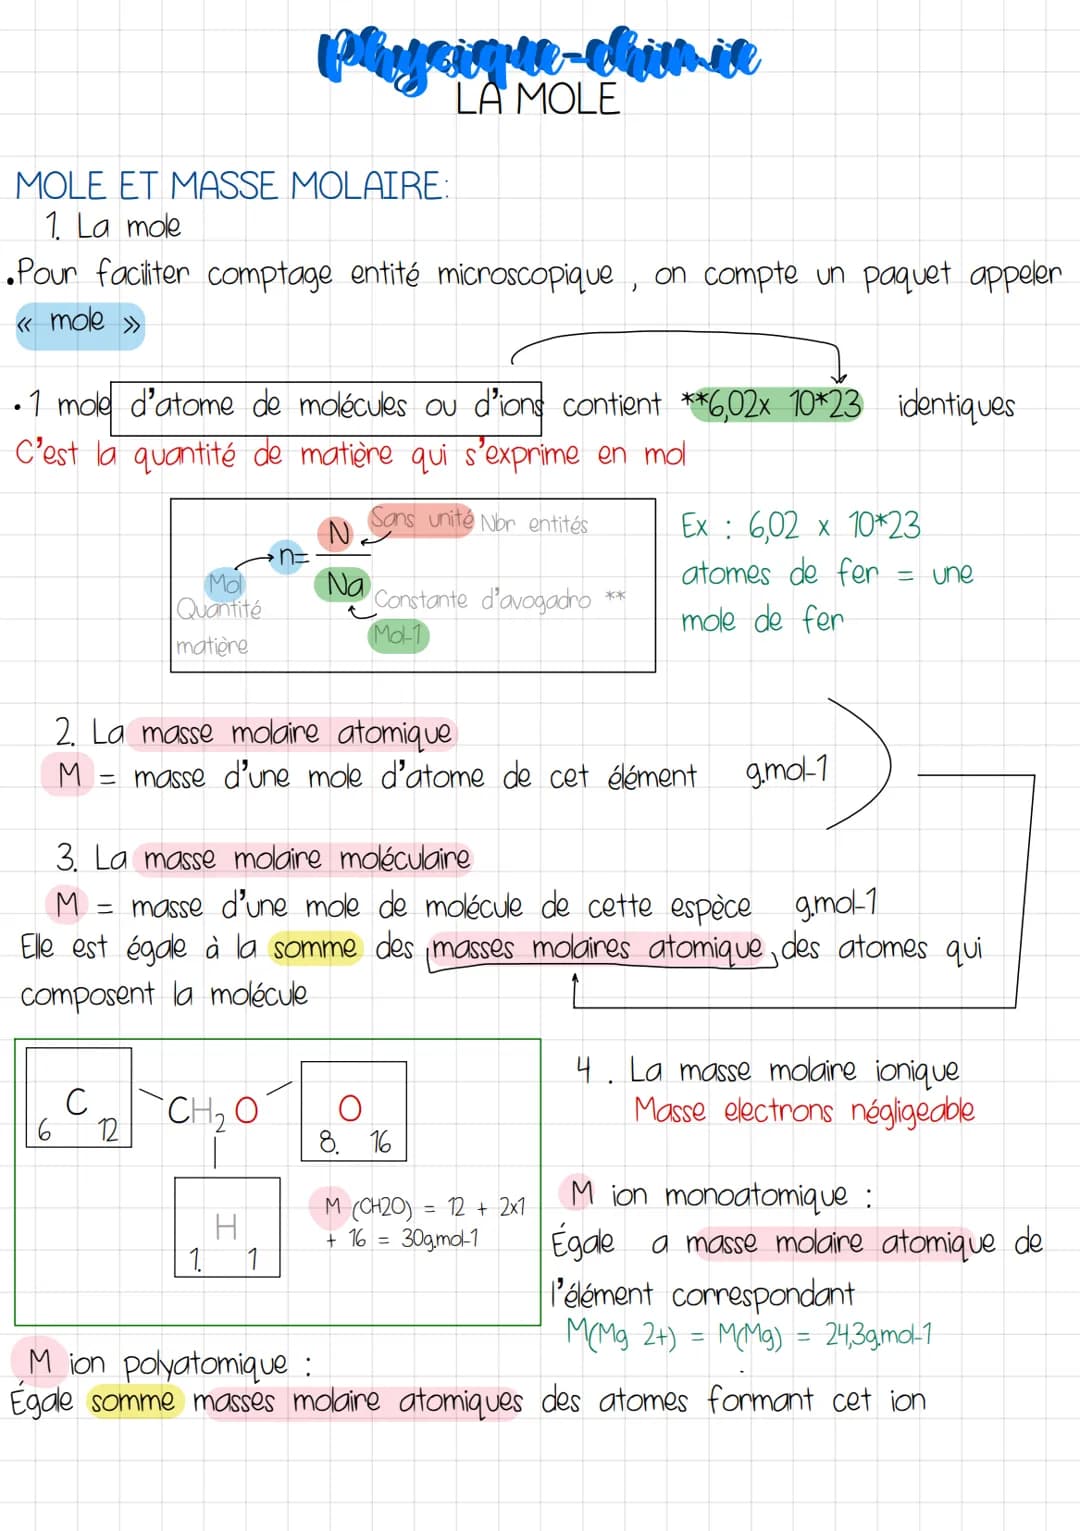 Physique-chimie
LA MOLE
MOLE ET MASSE MOLAIRE:
1. La mole
.Pour faciliter comptage entité microscopique , on compte un paquet appeler
« mole »
.1 mole d'atome de molécules ou d'ions contient **6,02x 10*23 identiques
C'est la quantité de matière qui s'exprime en mol
N Sans unité Nbr entités
n=
Mol
Quantité
matière
Na Constante d'avogadro **
Mol-1
Ex : 6,02 x 10*23
atomes de fer = une
mole de fer
2. La masse molaire atomique
M = masse d'une mole d'atome de cet élément g.mol-1
3. La masse molaire moléculaire
M = masse d'une mole de molécule de cette espèce g.mol-1
Elle est égale à la somme des masses molaires atomique des atomes qui
composent la molécule
C
6 12
CH2O
O
8. 16
H
1. 1
M (CH2O) = 12 + 2x1
+ 16 = 30g.mol-1
4 . La masse molaire ionique
Masse electrons négligeable
M ion monoatomique :
Égale a masse molaire atomique de
l'élément correspondant
M(Mg 2+) = M(Mg) = 24,3g.mol-1
M ion polyatomique :
Égale somme masses molaire atomiques des atomes formant cet ion